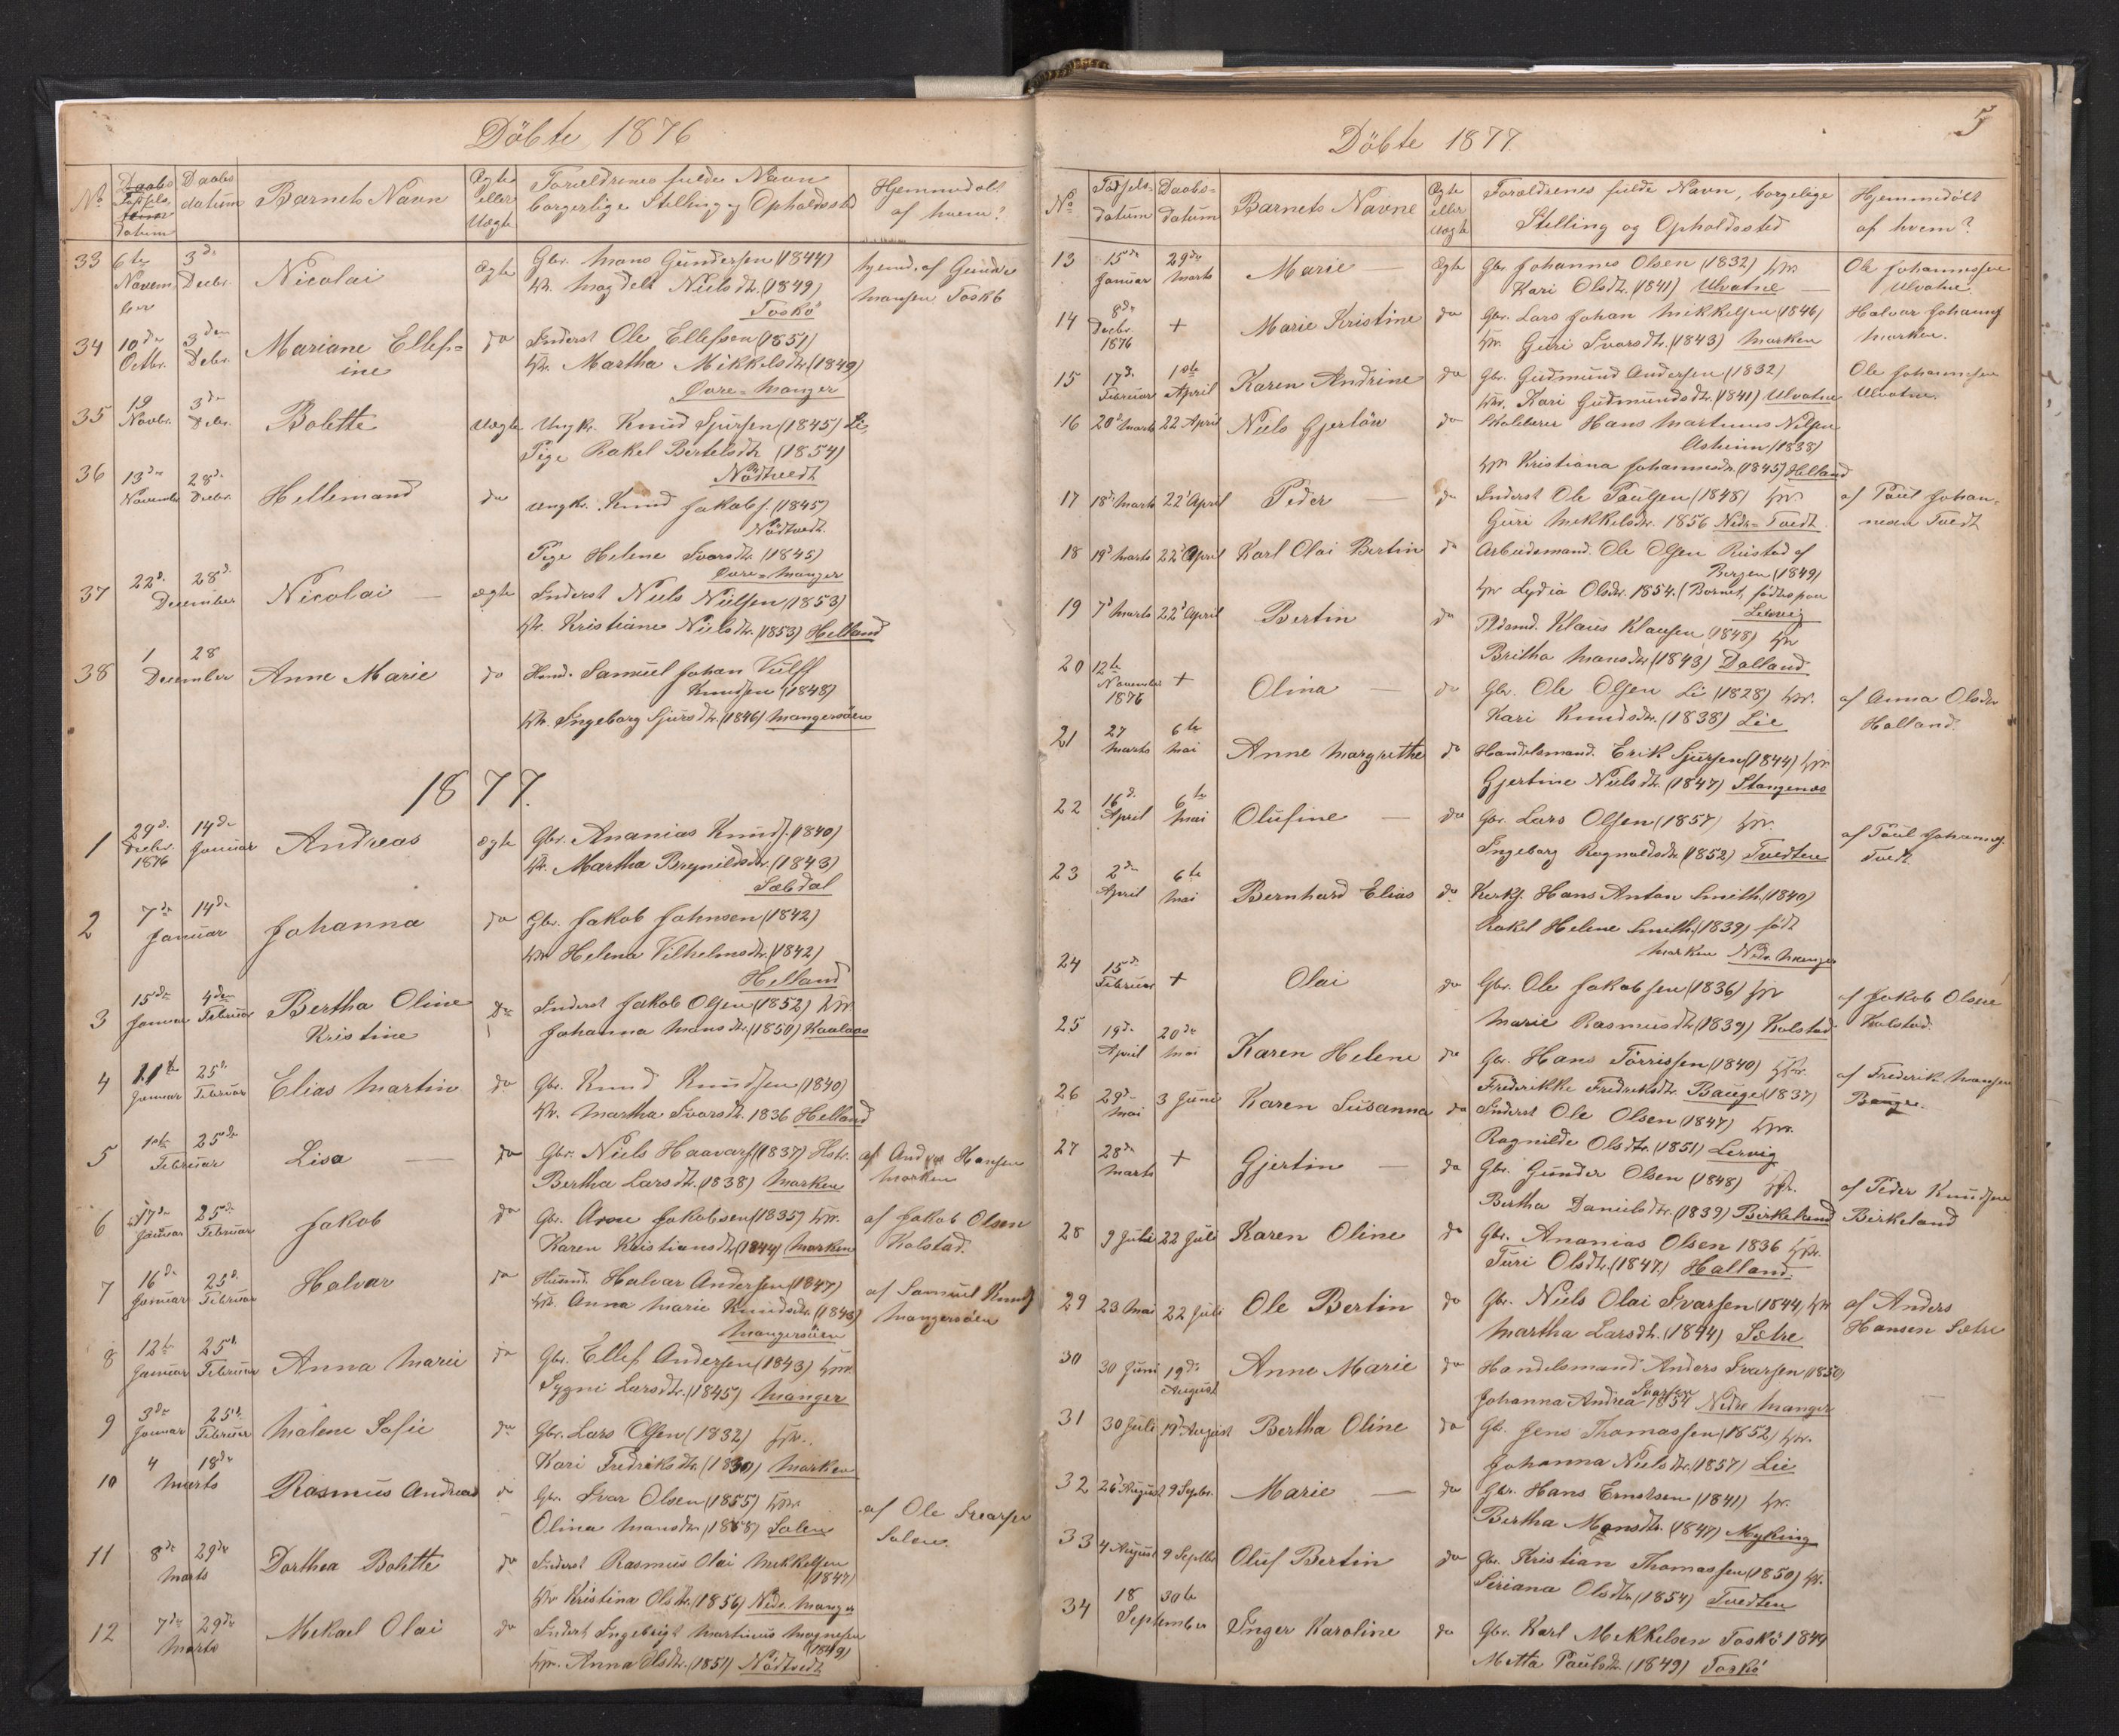 Döbte 1876
No
Daabs
Fødsels
datum
Daabs
datum
Barnets Navn
Ægte
eller
Uægte
Forældrenes fulde Navn
borgerlige Stilling og Opholdssted
Hjemmedøbt
af hvem?
33 6te Novem- ber 3de Decbr. Nicolai ægte Gbr. Mons Gundersen (1844) hjemd. af Gunder
Magdeli Nielsdtr. (1849) Monsen Toskö
Toskö
34 10de Octbr. 3den Debr. Mariane Ellef= do Inderst Ole Ellefsen (1851)
ine Martha Mikkelsdtr. (1849)
Övre=Manger
35 19 Novbr. 3de Debr. Bolette uægte Ungk. Knud Sjursen (1845) Li,
Pige Rakel Bertelsdtr. (1854)
Nödtvedt
36 13de November 28de Decbr. Hellemand do Ungk. Knud Jakobs. (1845)
Nödtvedt.
Pige Helene Ivarsdtr. (1845)
Övre=Manger
37 22d. 28d. December Nicolai ægte Inderst Niels Nielsen (1853)
Kristiane Nielsdtr. (1853) Helland
38 1 28 December Anne Marie do Hand. Samuel Johan Vulff
Knudsen (1848)
Ingeborg Sjursdtr. (1846) Mangersöen
1877.
1 29d. Decbr. 1876 14de Januar Andreas ægte Gbr. Ananias Knuds. (1840)
Martha Brynildsdtr. (1843)
Sæbdal
2 7de 14de Januar Johanna do Gbr. Jakob Johnsen (1842)
Helena Vilhelmsdtr. (1842)
Helland
3 15de Januar 4de Februar Bertha Oline Do Inderst Jakob Olsen (1852)
Kristine Johanna Monsdtr. (1850) Kaalaas
4 11te Januar 25d. Februar Elias Martin do Gbr. Knud Knudsen (1840)
Martha Ivarsdtr. 1836 Helland
5 1ste 25de Februar Lisa do Gbr. Niels Haavars. (1837) Hstr. af Anders Hansen
Bertha Larsdtr. (1838) Marken Marken
6 17de Januar 25de Februar Jakob do Gbr. Arne Jakobsen (1835) af Jakob Olsen
Karen Kristiansdtr. (1844) Marken Kolstad.
7 16de Januar 25d. Februar Halvar do Husmd. Halvar Andersen (1847) af Samuel Knuds.
Anna Marie Knudsdtr. (1843) Mangersöen
Mangersöen
8 12te Januar 25d. Februar Anna Marie do Gbr. Ellef Andersen (1843)
Sygni Larsdtr. (1845) Manger
9 3de Januar 25d. Februar Malene Sofie do Gbr. Lars Olsen (1832)
Kari Fredriksdtr. (1830) Marken
10 4 18de Marts Rasmus Andreas do Gbr. Ivar Olsen (1855) af Ole Ivarsen
Olina Monsdtr. (1858) Solen Solen.
11 8de 29de Marts Dorthea Bolette do Inderst Rasmus Olai Mikkelsen
(1847)
Kristina Olsdtr. (1856) Nedr. Manger
12 7de 29de Marts Mekael Olai do Inderst, Ingebrigt Martinus Mognesen
(1849)
Anna Olsdtr. (1851) Nödtvedt
5
Döbte 1877.
No
Fødsels-
datum
Daabs=
datum
Barnets Navne
Ægte
eller
Uægte
Forældrenes fulde Navn, borgelige
Stilling og Opholdssted
Hjemmedøbt
af hvem?
13 15de Januar 29de Marts Marie — Ægte Gbr. Johannes Olsen (1832) Ole Johannessen
Kari Olsdtr. (1841) Ulvatne — Ulvatne.
14 8de Decbr. 1876 + Marie Kristine do Gbr. Lars Johan Mikkelsen (1846) Halvar Johannes
Guri Ivarsdtr. (1843) Marken Marken.
15 17d. Februar 1ste April Karen Andrine do Gbr. Gudmund Andersen (1832) Ole Johannesen
Kari Gudmundsdtr. (1841) Ulvatne Ulvatne.
16 20de Marts 22 April Niels Gjerlöw do Skolelærer Hans Martinus Nilsen
Asheim (1838)
Kristiana Johannesdtr. (1845) Helland
17 18de Marts 22d April Peder — do Inderst Ole Paulsen (1848) af Paul Johan-
Guri Mekkelsdtr. 1856 Nedr=Tvedt nesen Tvedt
18 19d Marts 22d April Karl Olai Bertin do Arbeidsmand. Ole Olsen Reistad af
Bergen (1849)
Lydia Olsdtr. 1854. (Barnet fødtes paa
Lervig
19 7d Marts 22d April Bertin do Pldsmd. Klaus Klausen (1848)
Britha Mansdtr. (1843) Dalland
20 12te November 1876 + Olina — do Gbr. Ole Olsen Li (1828) af Anna Olsdtr
Kari Knudsdtr. (1838) Lie Halland.
21 27 Marts 6te Mai Anne Margrethe do Handelsmand. Erik Sjursen (1844)
Gjertine Nielsdtr. (1847) Stangenæs
22 16d. April 6te Mai Olufine — do Gbr. Lars Olsen (1857) af Paul Johannes.
Ingeborg Ragnaldsdtr. (1852) Tvedten Tvedt.
23 2de April 6te Mai Bernhard Elias do Kirksj. Hans Anton Smith. (1840)
Rakel Helene Smith. (1839) født
Marken Nedr. Manger
24 15de Februar + Olai do Gbr. Ole Jakobsen (1836) af Jakob Olsen
Marie Rasmusdtr. (1839) Kolstad Kolstad.
25 19de April 20de Mai Karen Helene do Gbr. Hans Törrissen (1840) af Frederik Hansen
Frederikke Fredriksdtr. Bauge (1837) Bauge.
26 29de Mai 3 Juni Karen Susanna do Inderst Ole Olsen (1847)
Ragnilde Olsdtr. (1851) Lervig
27 28de Marts + Gjertin — do Gbr. Gunder Olsen (1848) af Peder Knudsen
Birtha Danielsdtr. (1839) Birkeland Birkeland
28 9 Juli 22 Juli Karen Oline do Gbr. Ananias Olsen 1836
Turi Olsdtr. (1847.) Halland.
29 23 Mai 22 Juli Ole Bertin do Gbr. Niels Olai Ivarsen (1844) af Anders
Martha Larsdtr. (1844) Sætre Hansen Sætre
30 30 Juni 19de August Anne Marie do Handelsmand Anders Ivarsen (1850)
Johanna Andrea Ivarsen 1854 Nedre Manger
31 30 Juli 19d August Bertha Oline do Gbr. Jens Thomassen (1852)
Johanna Nielsdtr. (1857) Lie
32 26 August 9 Septbr. Marie — do Gbr. Hans Ernstsen (1841)
Bertha Monsdtr. (1847) Myking
33 4 August 9 Septbr Oluf Bertin do Gbr. Kristian Thomassen (1850)
Siriana Olsdtr. (1854) Tvedten
34 18 30te September Inger Karoline do Gbr. Karl Mekkelsen Toskö 1844
Metta Paulsdtr. (1849) Toskö